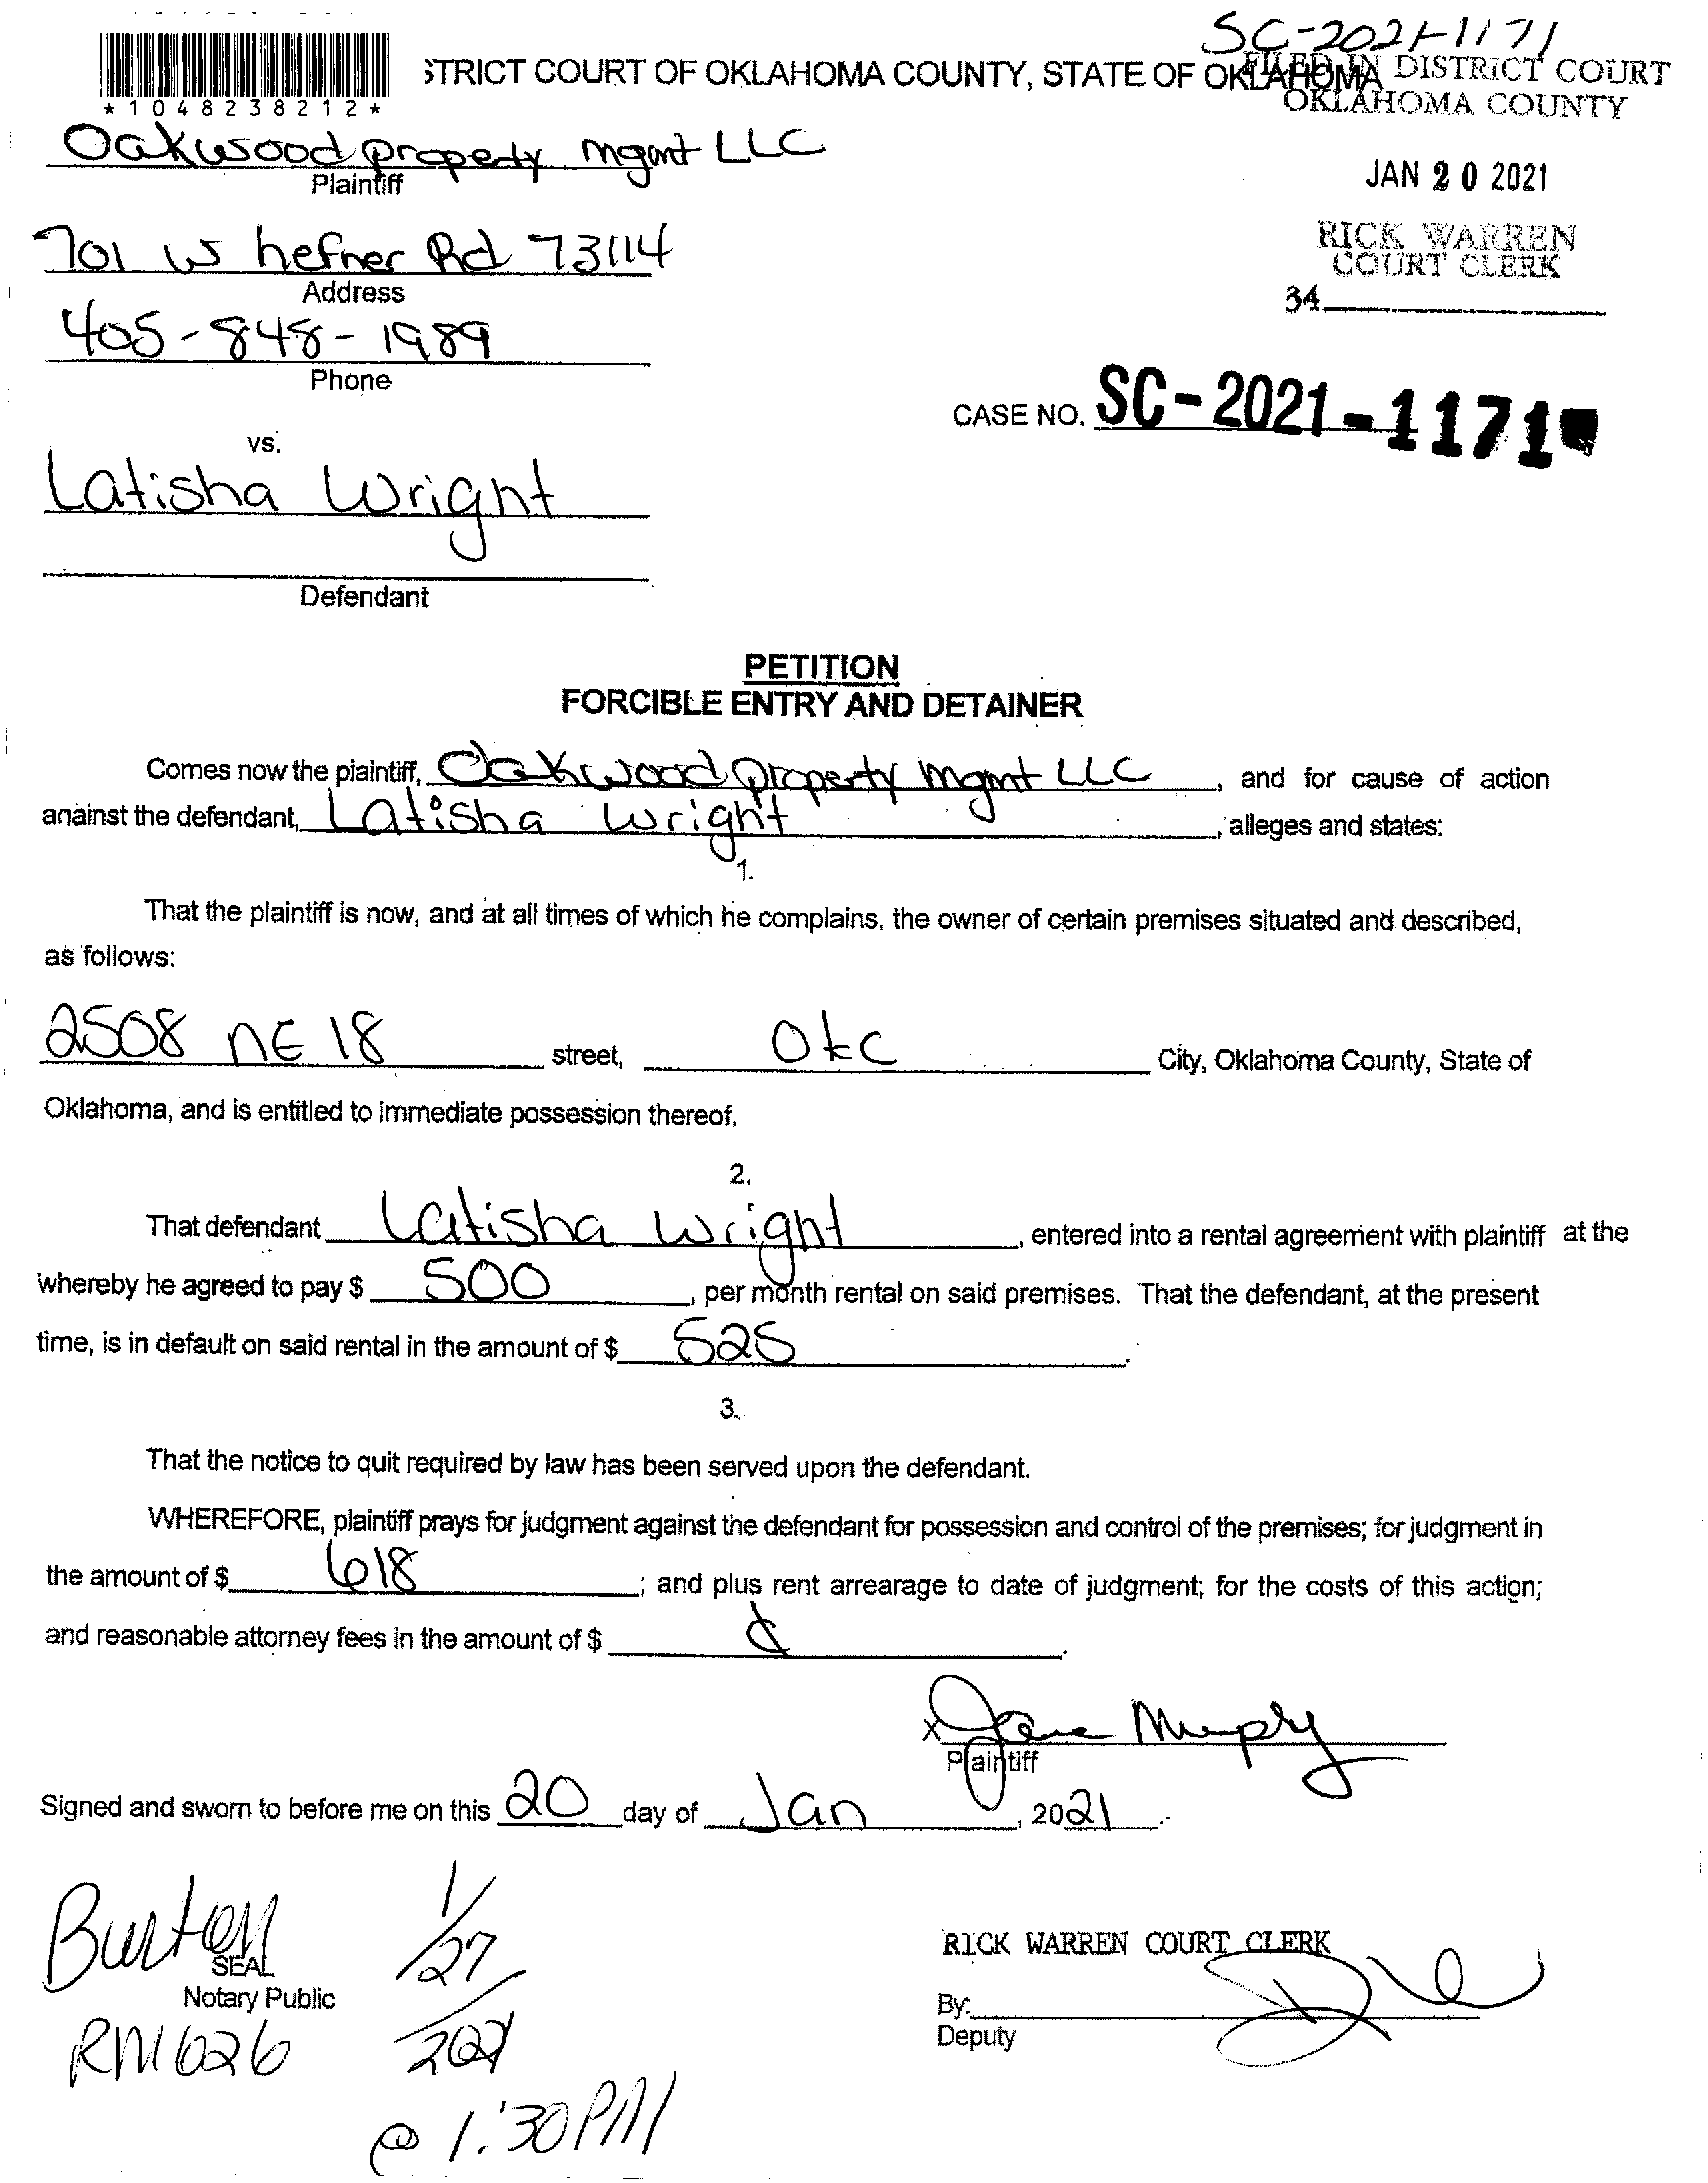 SC-2021-1171
STRICT COURT OF OKLAHOMA COUNTY, STATE OF OKLAHOMA
FILED IN DISTRICT COURT
OKLAHOMA COUNTY
*1048238212*
Oakwood property mgmt LLC
Plaintiff
JAN 20 2021
701 W hefner Rd 73114
Address
RICK WARREN
COURT CLERK
34
405-848-1989
Phone
CASE NO. SC-2021-1171
vs.
Latisha Wright
Defendant
PETITION
FORCIBLE ENTRY AND DETAINER
Comes now the plaintiff, Oakwood property mgmt LLC, and for cause of action
against the defendant, Latisha Wright, alleges and states:
1.
That the plaintiff is now, and at all times of which he complains, the owner of certain premises situated and described,
as follows:
2508 NE 18 street, Okc City, Oklahoma County, State of
Oklahoma, and is entitled to immediate possession thereof.
2.
That defendant Latisha Wright, entered into a rental agreement with plaintiff at the
whereby he agreed to pay $ 500, per month rental on said premises. That the defendant, at the present
time, is in default on said rental in the amount of $ 525.
3.
That the notice to quit required by law has been served upon the defendant.
WHEREFORE, plaintiff prays for judgment against the defendant for possession and control of the premises; for judgment in
the amount of $ 618; and plus rent arrearage to date of judgment; for the costs of this action;
and reasonable attorney fees in the amount of $
x Jane Murphy
Plaintiff
Signed and sworn to before me on this 20 day of Jan, 2021.
Burton 1/27/2021
SEAL
Notary Public
RM 626
@ 1:30 PM
RICK WARREN COURT CLERK
By:
Deputy